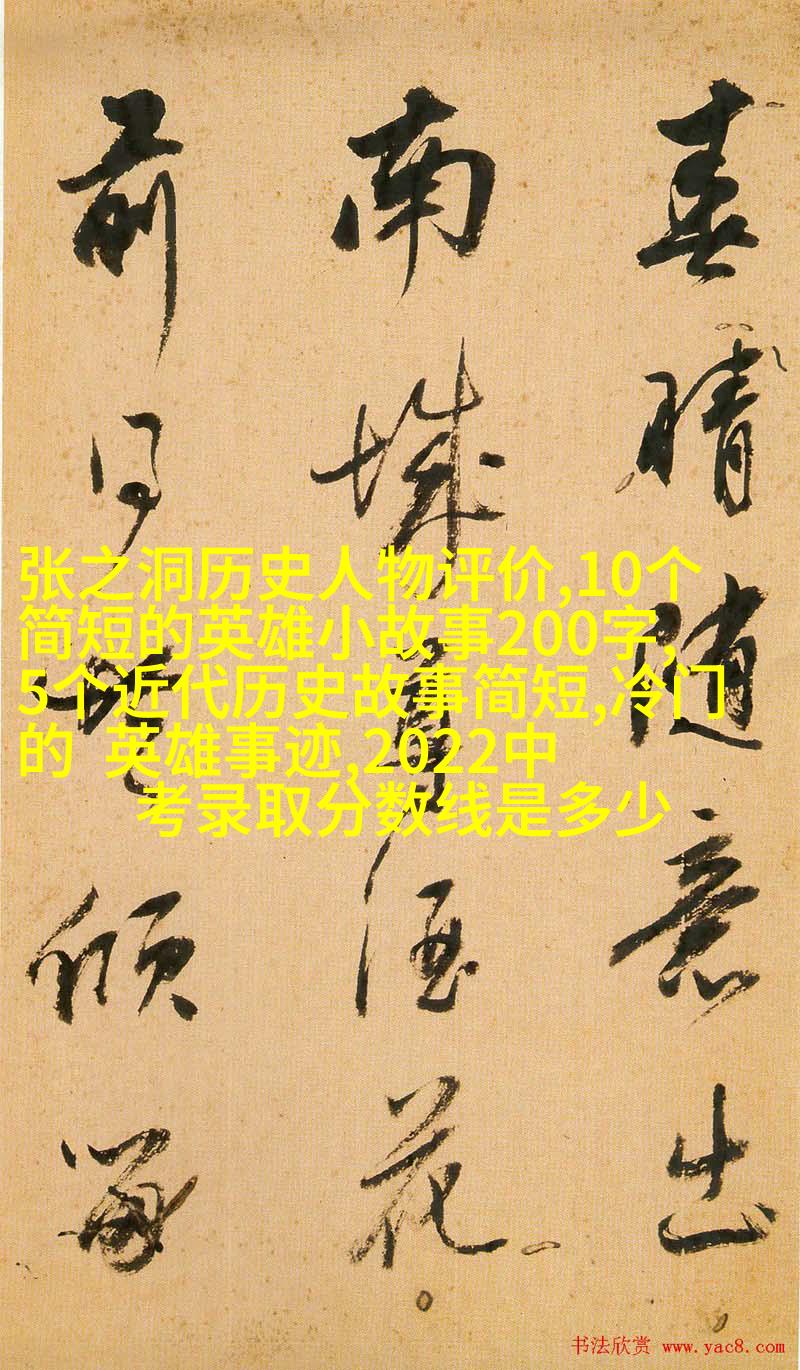 春晴随意出
南城賣酒花
前
倾
张之洞历史人物评价,10个
简短的英雄小故事200字,
5个近代历史故事简短,冷门
的 英雄事迹,2022中
考录取分数线是多少
书法欣赏 www.yac8.com